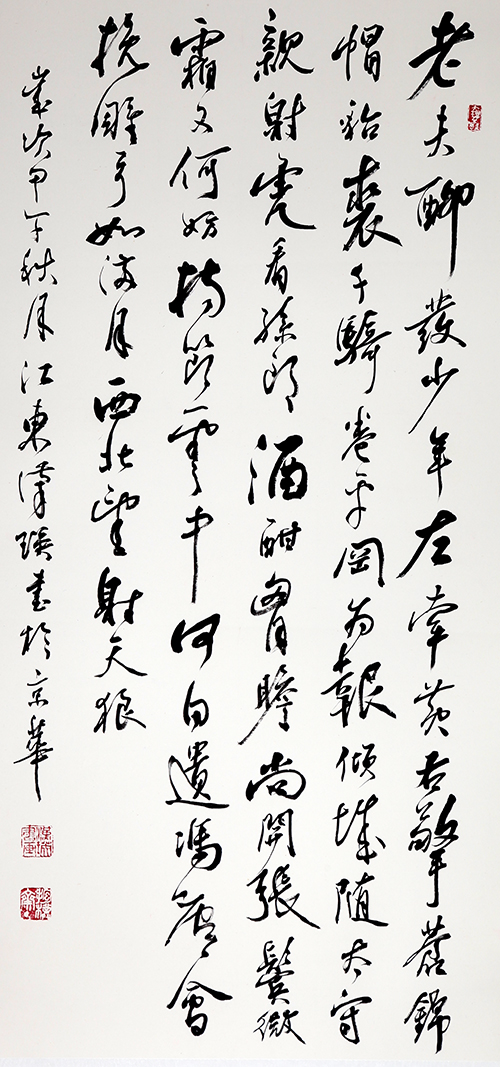 老夫聊發少年左牽黃右擎蒼錦
帽貂裘千騎卷平岡为報傾城随太守
親射虎看孫郎酒酣胷膽尚開張鬢微
霜又何妨持節雲中何日遣馮唐會
挽雕弓如滿月西北望射天狼
歲次甲午秋月江東漢書於京華